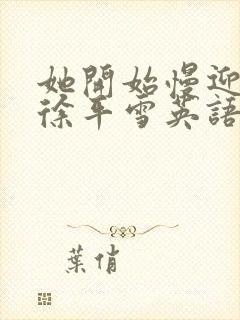 她開始慢迎
徐平雪英語
葉俏